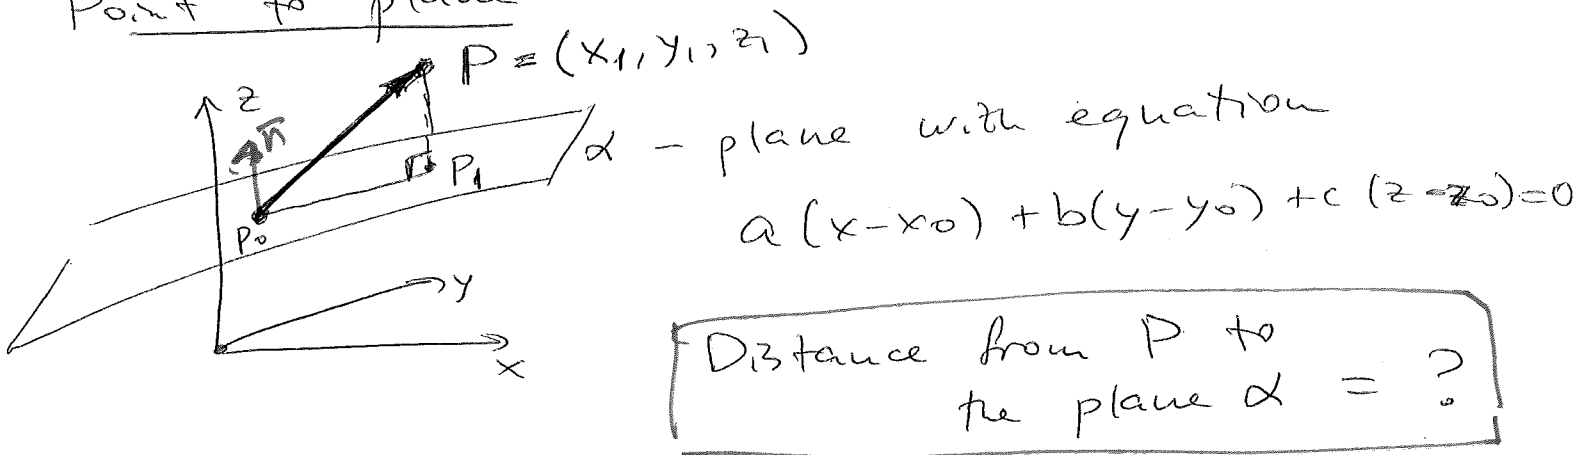 Point to plane
P = (x₁, y₁, z₁)
z
n̄
α – plane with equation
P₁
P₀
a(x-x₀) + b(y-y₀) + c(z-z₀)=0
y
x
Distance from P to
the plane α = ?